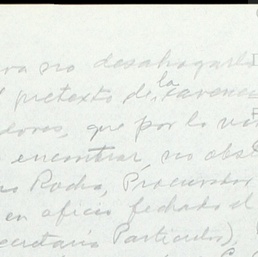 para no desahogarlo
el pretexto de la carencia
dores, que por lo vis
encontrar, no obs
Rocha, Procurador
en oficio fechado el
Secretaría Particular),